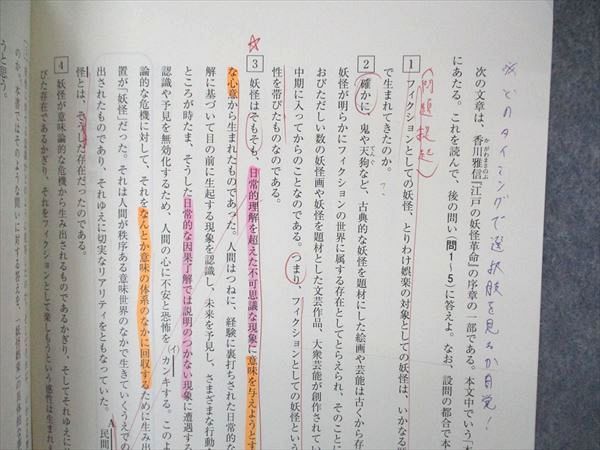 どのタイミングで選択肢を見るか自覚!
次の文章は、香川雅信『江戸の妖怪革命』の序章の一部である。本文中でいう「本
にあたる。これを読んで、後の問い（問1～5）に答えよ。なお、設問の都合で本
問題提起
1 フィクションとしての妖怪、とりわけ娯楽の対象としての妖怪は、いかなる
で生まれてきたのか。
2 確かに、鬼や天狗など、古典的な妖怪を題材にした絵画や芸能は古くから存
妖怪が明らかにフィクションの世界に属する存在としてとらえられ、そのことに
おびただしい数の妖怪画や妖怪を題材とした文芸作品、大衆芸能が創作されてい
中期に入ってからのことなのである。つまり、フィクションとしての妖怪という
性を帯びたものなのである。
3 妖怪はそもそも、日常的理解を超えた不可思議な現象に意味を与えようとす
な心意から生まれたものであった。人間はつねに、経験に裏打ちされた日常的な
解に基づいて目の前に生起する現象を認識し、未来を予見し、さまざまな行動を
ところが時たま、そうした日常的な因果了解では説明のつかない現象に遭遇する
認識や予見を無効化するため、人間の心に不安と恐怖を(イ)カンキする。このよ
論的な危機に対して、それをなんとか意味の体系のなかに回収するために生み出
置が「妖怪」だった。それは人間が秩序ある意味世界のなかで生きていくうえでの
出されたものであり、それゆえに切実なリアリティをともなっていた。A民間
怪とは、そうした存在だったのである。
4 妖怪が意味論的な危機から生み出されるものであるかぎり、そしてそれゆえに
びた存在であるかぎり、それをフィクションとして楽しもうという感性は生まれえ
のか。本書ではそのような問いに対する答えを、
うと思う。